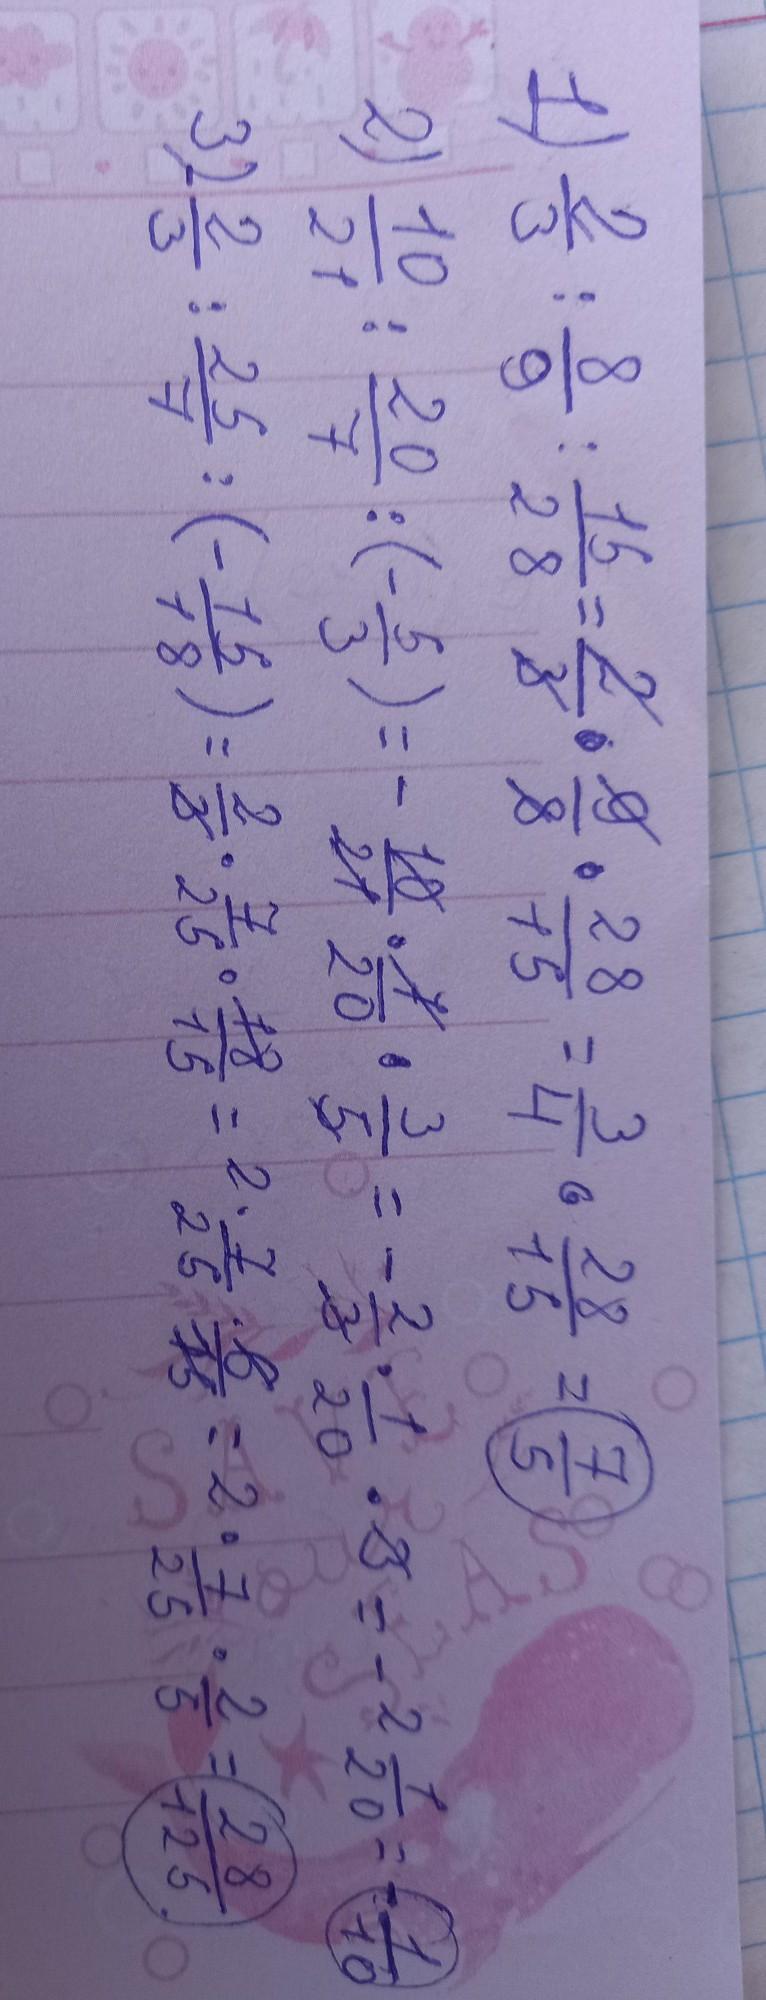 1) 2/3 : 8/9 : 15/28 = 2/3 · 9/8 · 28/15 = 3/4 · 28/15 = 7/5
2) 10/21 : 20/7 : (-5/3) = - 10/21 · 7/20 · 3/5 = - 2/3 · 1/20 · 3 = - 2 1/20 = - 1/10
3) 2/3 : 25/7 : (-15/18) = 2/3 · 7/25 · 18/15 = 2 · 7/25 · 6/15 = 2 · 7/25 · 2/5 = 28/125